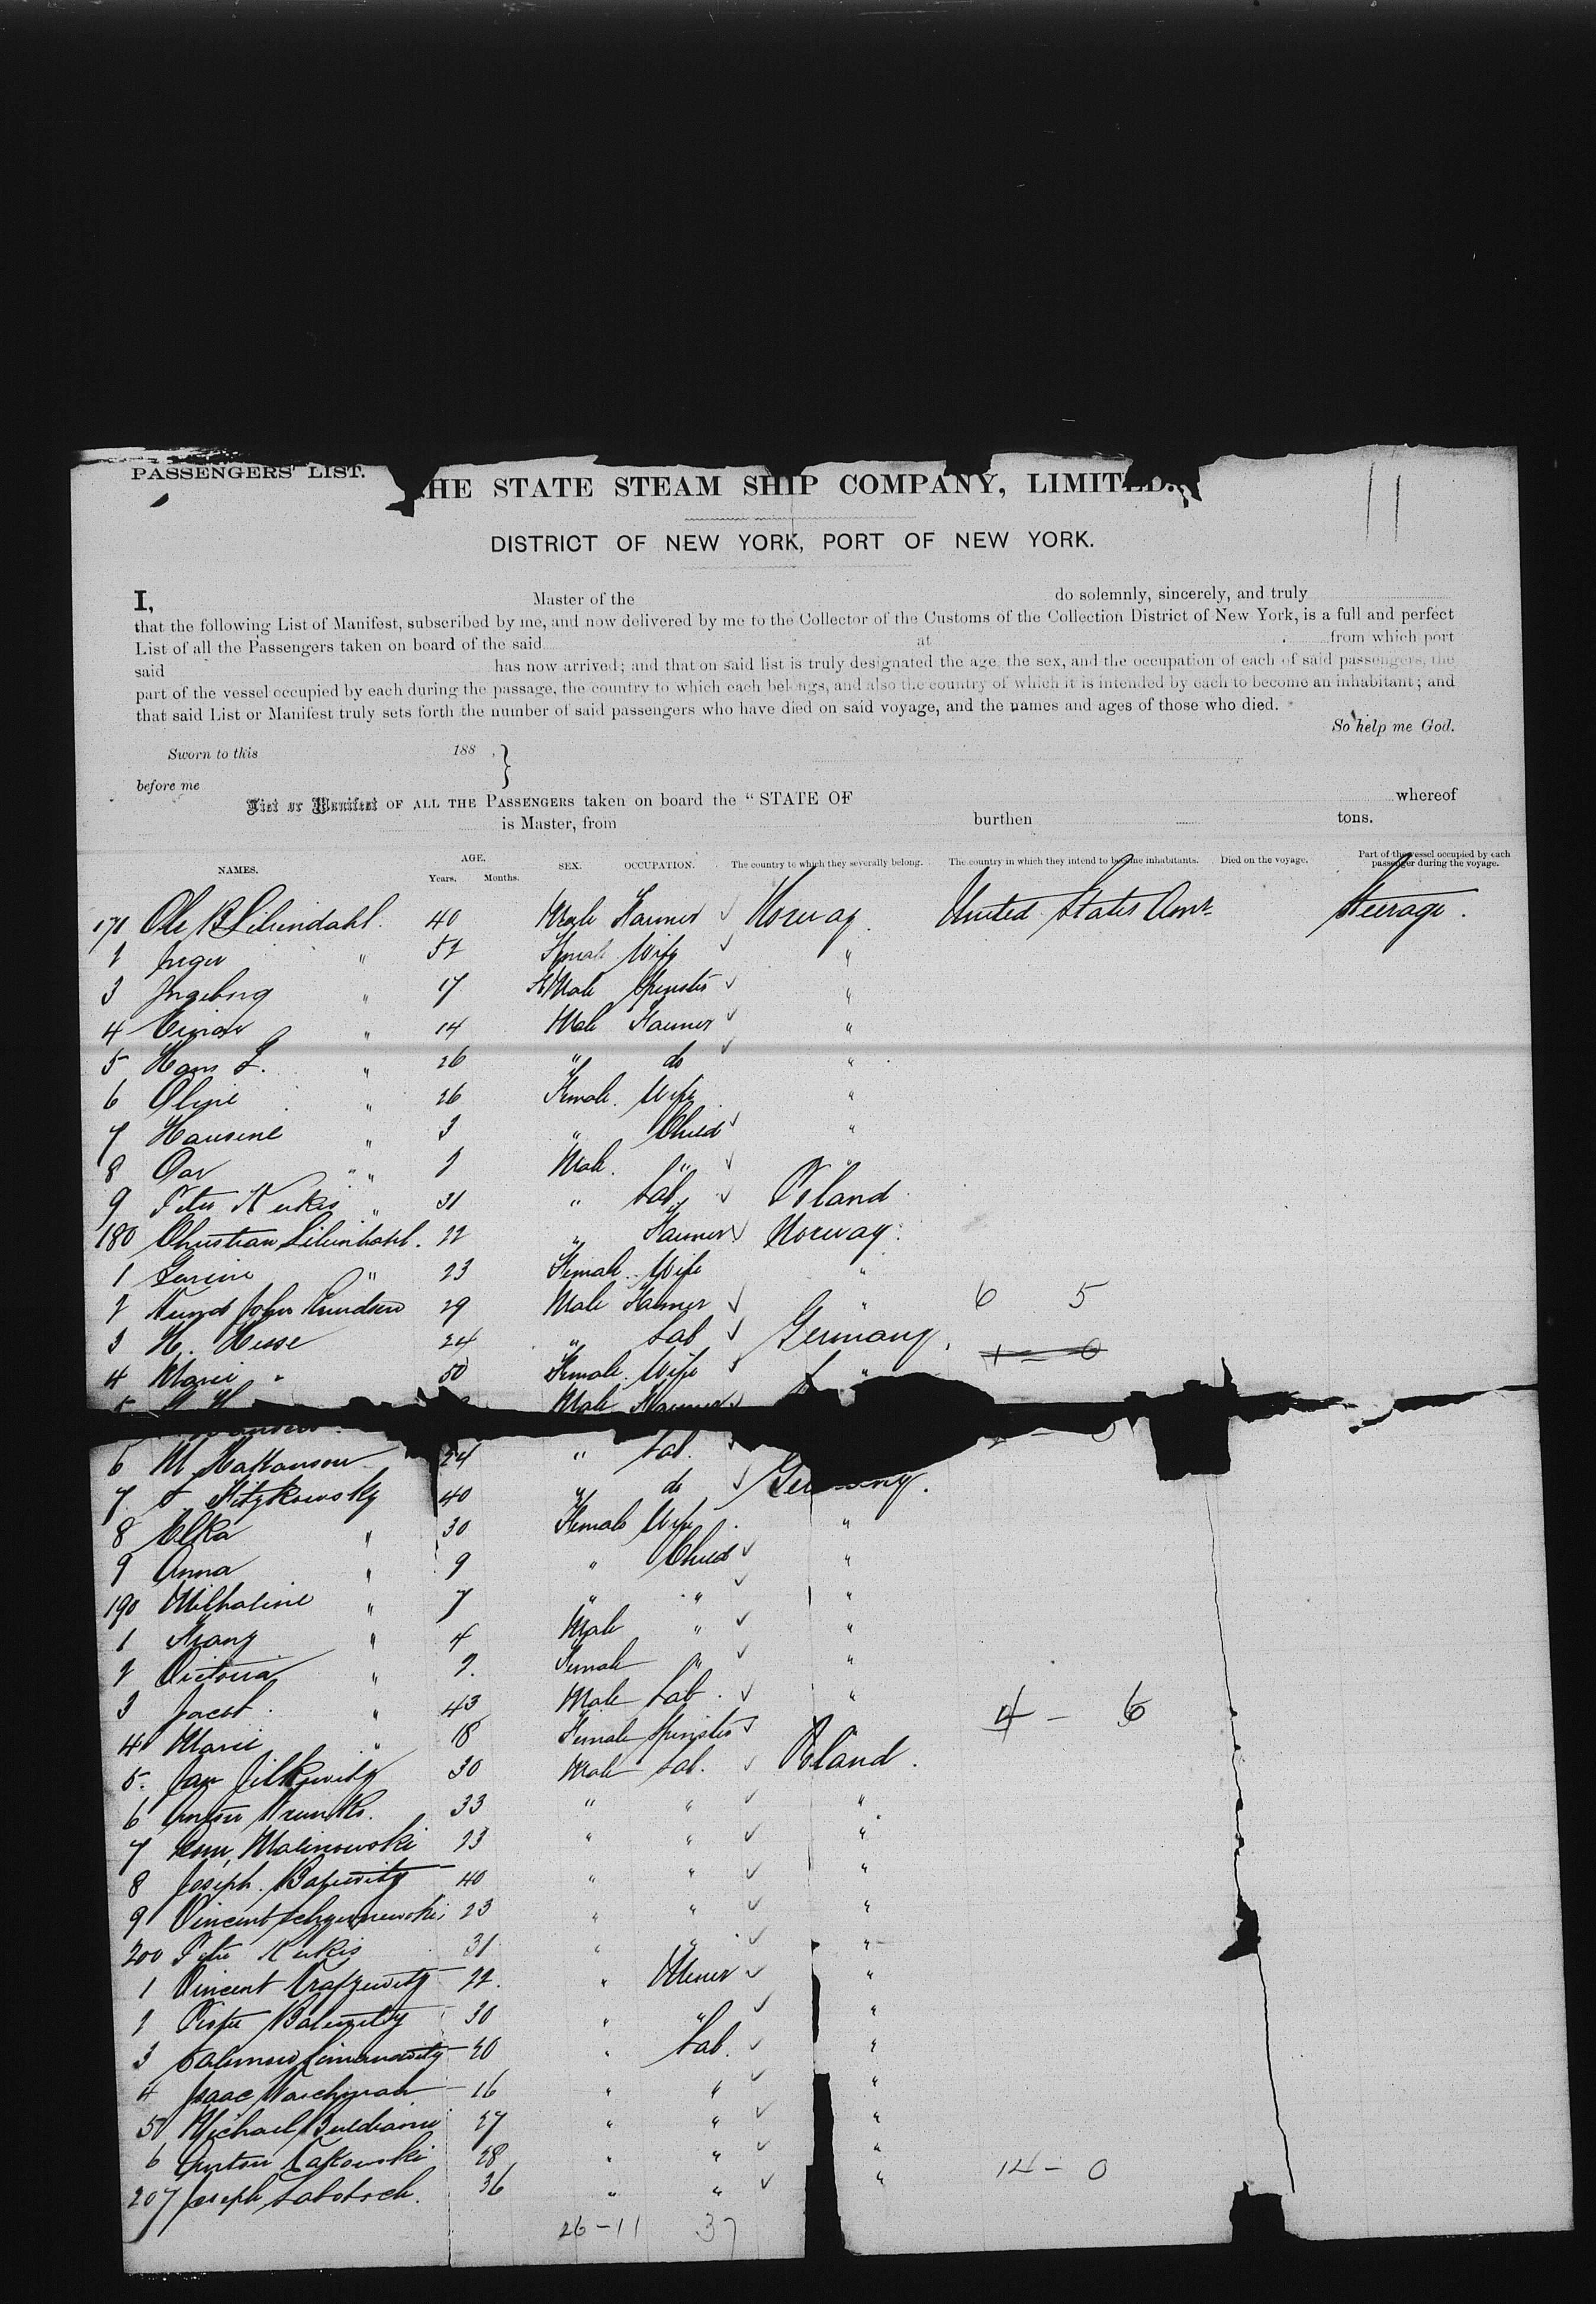 PASSENGERS' LIST.
THE STATE STEAM SHIP COMPANY, LIMITED.
11
DISTRICT OF NEW YORK, PORT OF NEW YORK.
I, Master of the do solemnly, sincerely, and truly
that the following List of Manifest, subscribed by me, and now delivered by me to the Collector of the Customs of the Collection District of New York, is a full and perfect
List of all the Passengers taken on board of the said at from which port
said has now arrived; and that on said list is truly designated the age, the sex, and the occupation of each of said passengers, the
part of the vessel occupied by each during the passage, the country to which each belongs, and also the country of which it is intended by each to become an inhabitant; and
that said List or Manifest truly sets forth the number of said passengers who have died on said voyage, and the names and ages of those who died.
So help me God.
Sworn to this 188 . }
before me
List or Manifest OF ALL THE PASSENGERS taken on board the "STATE OF whereof
is Master, from burthen tons.
NAMES. AGE. Years. Months. SEX. OCCUPATION. The country to which they severally belong. The country in which they intend to become inhabitants. Died on the voyage. Part of the vessel occupied by each passenger during the voyage.
171 Ole B 40 Male Farmer ✓ Norway. United States Amr Steerage.
2 Inger " 52 Female Wife ✓ "
3 Ingeborg " 17 Spinster ✓ "
4 Einar " 14 Male Farmer ✓ "
5 Hans L. " 26 " do ✓ "
6 Oline " 26 Female Wife "
7 Hansine " 3 " Child ✓ "
8 " 2 Male " ✓ "
9 Peter Kukis " 31 " Lab. ✓ Poland
180 Christian 22 " Farmer ✓ Norway.
1 " 23 Female Wife "
2 Knud John Knudsen 29 Male Farmer ✓ " 6 5
3 H. Hesse 24 " Lab ✓ Germany.
4 Marie " 50 Female Wife ✓ "
5 Male Farmer ✓
6 M 24 " Lab. ✓
7 40 " do ✓ Germany.
8 Elka " 30 Female Wife "
9 Anna " 9 " Child ✓ "
190 " 7 " " ✓ "
1 Franz " 4 Male " ✓ "
2 Victoria " 2. Female " ✓ "
3 Jacob " 43 Male Lab. ✓ " 4 - 6
4 Marie " 18 Female Spinster ✓
5. Jan 30 Male Lab. ✓ Poland.
6 Anton 33 " " ✓ "
7 Malinowski 23 " " ✓ "
8 Joseph 40 " " ✓ "
9 Vincent 23 " " ✓ "
200 Peter Kukis 31 " " ✓ "
1 Vincent 22. " Miner ✓ "
2 30 " " ✓ "
3 20 " Lab. ✓ "
4 Isaac 16 " " ✓ "
5 Michael 27 " " ✓ "
6 Anton 28 " " ✓ "
207 Joseph 36 " " ✓ " 14 - 0
26 - 11 37